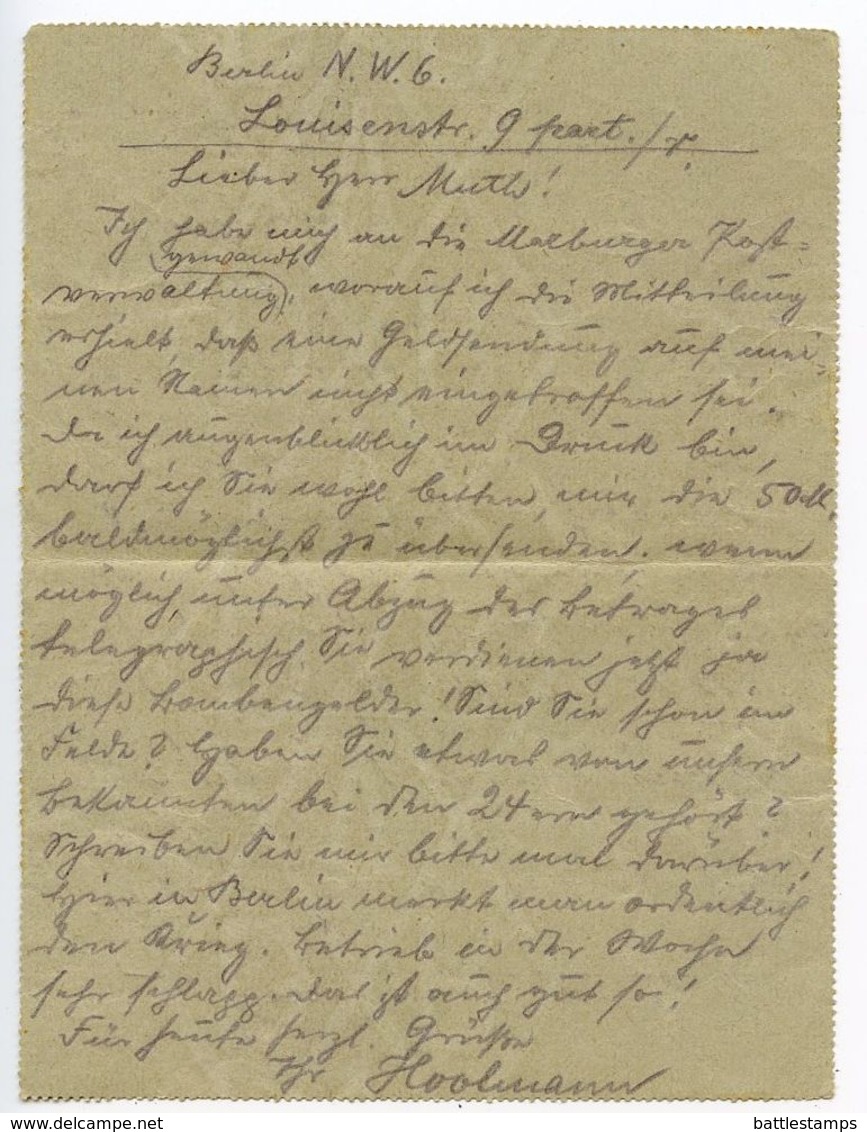 Berlin N.W.6.
Louisenstr. 9 part. / r.
Lieber Herr Muth!
Ich habe mich an die Marburger Post-
gewandt
verwaltung, worauf ich die Mitteilung
erhielt, daß eine Geldsendung auf mei-
nen Namen nicht eingetroffen sei.
Da ich augenblicklich im Druck bin,
darf ich Sie wohl bitten, mir die 50 M.
baldmöglichst zu übersenden, wenn
möglich, unter Abzug des Betrages
telegraphisch. Sie verdienen jetzt ja
diese Bombengelder! Sind Sie schon im
Felde? Haben Sie etwas von unsern
Bekannten bei den 24ern gehört?
Schreiben Sie mir bitte mal darüber!
Hier in Berlin merkt man ordentlich
den Krieg. Betrieb in der Woche
sehr schlapp. Das ist auch gut so!
Für heute herzl. Grüße
Ihr Hoolmann
delcampe.net
battlestamps